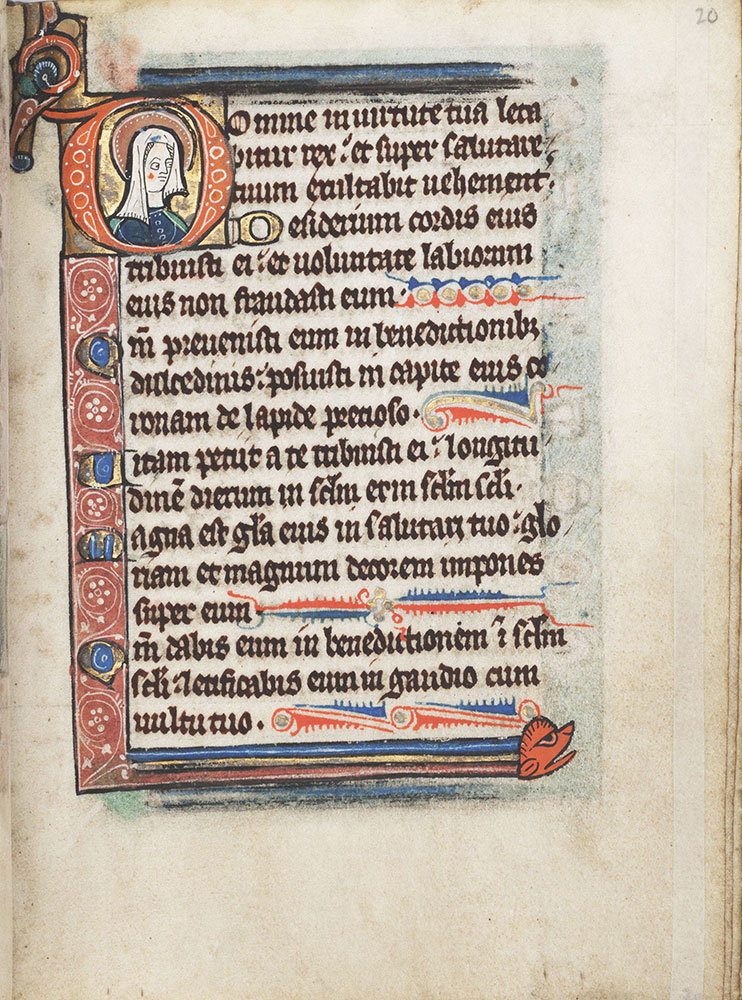 20
Domine in uirtute tua leta
bitur rex: et super salutare
tuum exultabit uehement.
Desiderium cordis eius
tribuisti ei: et uoluntate labiorum
eius non fraudasti eum.
Qm̄ preuenisti eum in benedictionibꝫ
dulcedinis: posuisti in capite eius co
ronam de lapide precioso.
Uitam petiit a te tribuisti ei: longitu
dinē dierum in sc̄lm et in sc̄lm sc̄li.
Magna est gl̄a eius in salutari tuo: glo
riam et magnum decorem impones
super eum
Qm̄ dabis eum in benedictionem ī sc̄lm
sc̄li: letificabis eum in gaudio cum
uultu tuo.